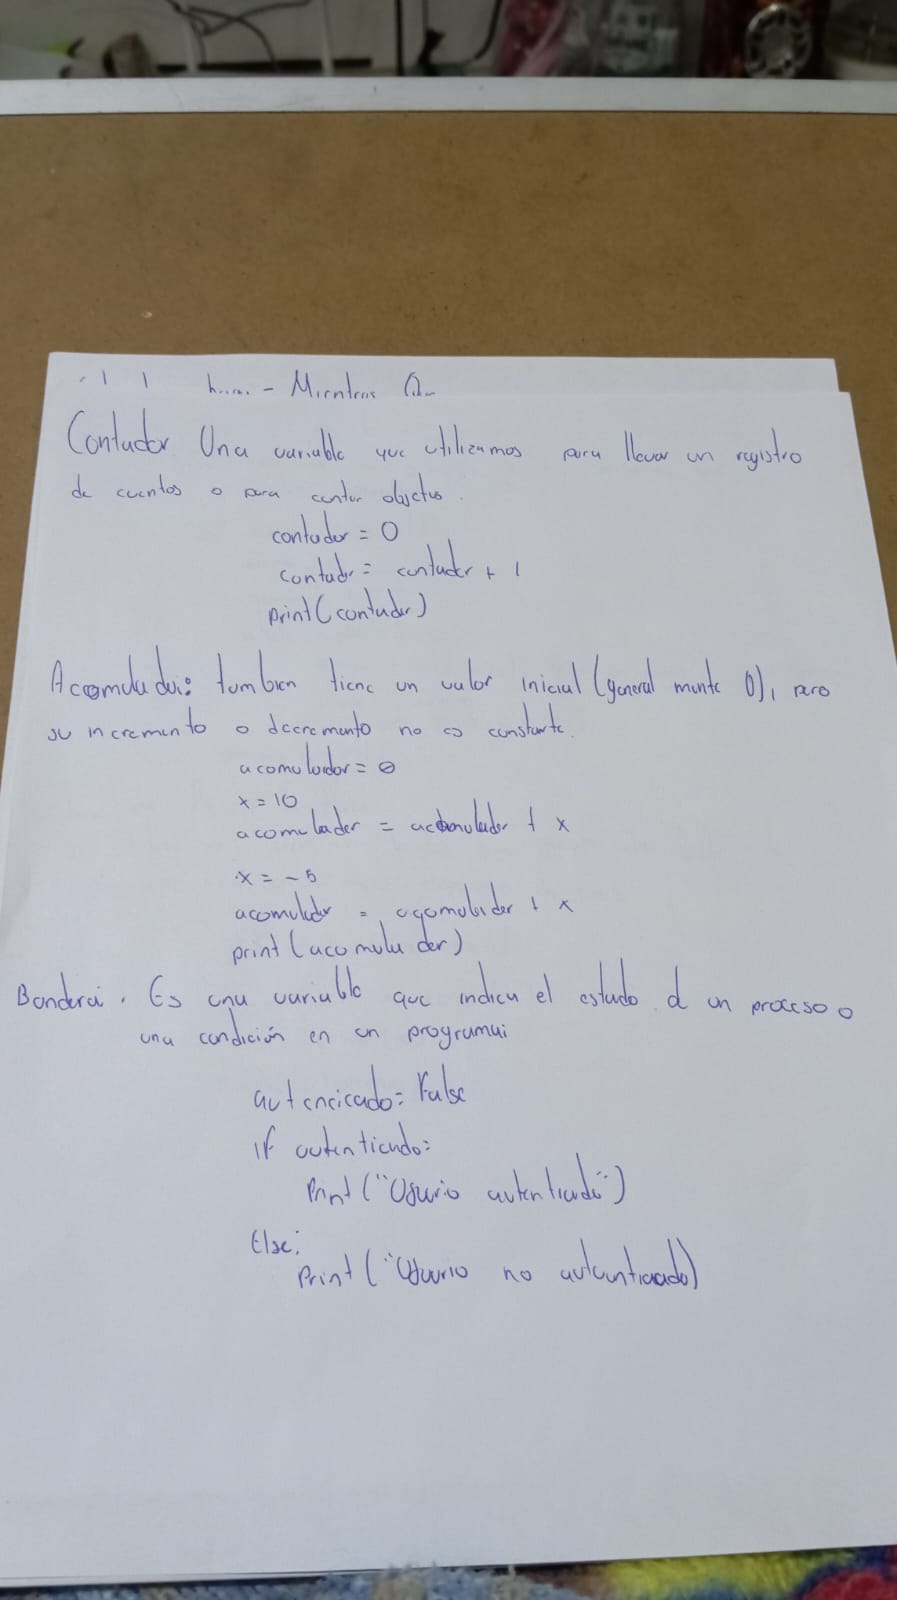 - Mientras
Contador Una variable que utilizamos para llevar un registro
de cuentos o para contar objetos.
contador = 0
contador = contador + 1
print(contador)
Acomulador: tambien tiene un valor inicial (general mente 0), pero
su incremento o decremento no es constante.
acomulador = 0
x = 10
acomulador = acomulador + x
x = -5
acomulador = acomulador + x
print (acomulador)
Bandera: Es una variable que indica el estado d un proceso o
una condición en un programa
autencicado = False
if autenticado:
Print ("Usurio autenticado")
Else:
Print ("Usuario no autenticado)